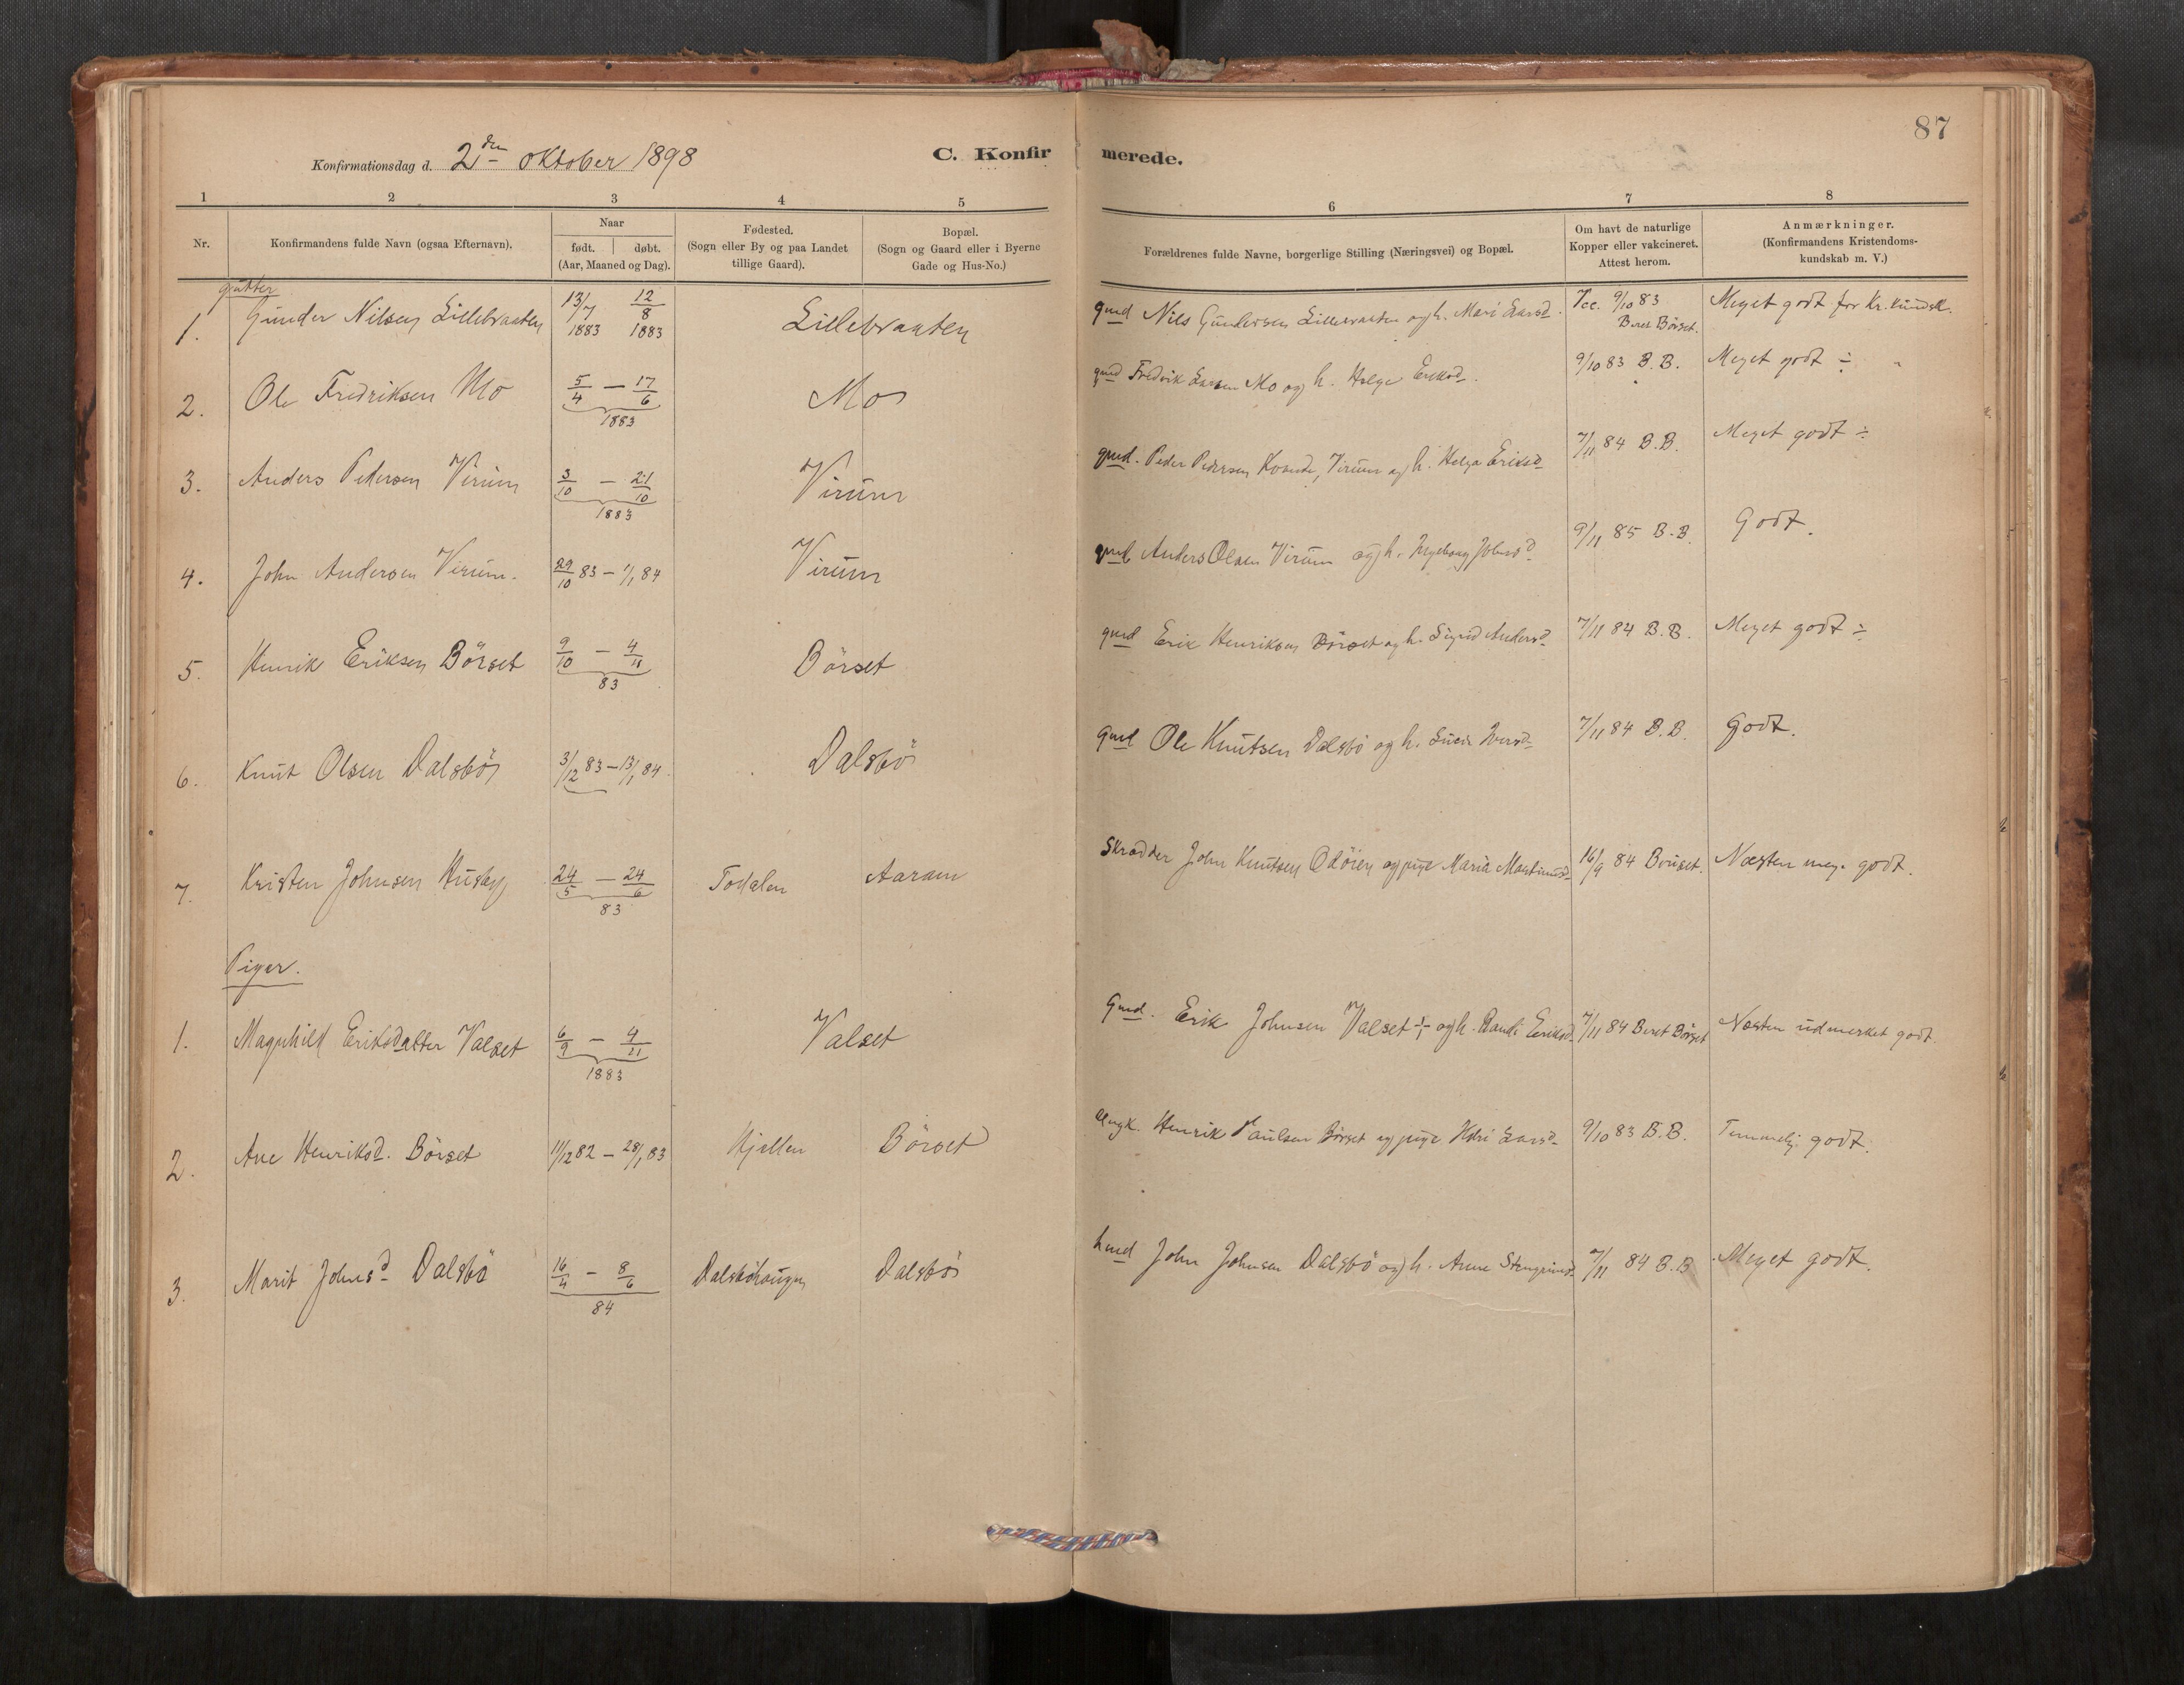 87
Konfirmationsdag d. 2den oktober 1898
C. Konfirmerede.
1 2 3 4 5 6 7 8
Nr.
Konfirmandens fulde Navn (ogsaa Efternavn).
Naar
født. døbt.
(Aar, Maaned og Dag).
Fødested.
(Sogn eller By og paa Landet
tillige Gaard).
Bopæl.
(Sogn og Gaard eller i Byerne
Gade og Hus-No.)
Forældrenes fulde Navne, borgerlige Stilling (Næringsvei) og Bopæl.
Om havt de naturlige
Kopper eller vakcineret.
Attest herom.
Anmærkninger.
(Konfirmandens Kristendoms-
kundskab m. V.)
gutter
1. Gunder Nilsen Lillebraaten 13/7 1883 12/8 1883 Lillebraaten gmd Nils Gundersen Lillebraaten og h. Mari Larsd. Vcc. 9/10 83 Beret Börset. Meget godt for Kr. kundsk.
2. Ole Fredriksen Mo 5/4 – 17/6 1883 Mo gmd Fredrik Larsen Mo og h. Helge Eriksd. 9/10 83 B.B. Meget godt ÷ "
3. Anders Pedersen Virum 3/10 – 21/10 1883 Virum gmd. Peder Pedersen Virum og h. Helga Eriksd 7/11 84 B.B. Meget godt ÷
4. John Andersen Virum. 29/10 83 – 1/1 84 Virum gmd Anders Olsen Virum og h. Ingeborg Johnsd 9/11 85 B.B. Godt.
5. Henrik Eriksen Börset 9/10 – 4/11 83 Börset gmd Erik Henriksen Börset og h. Sigrid Andersd 7/11 84 B.B. Meget godt ÷
6. Knut Olsen Dalsbö 3/12 83 – 13/1 84. Dalsbö Gmd Ole Knutsen Dalsbö og h. Iversd 7/11 84 B.B. Godt.
7. Kristen Johnsen Husby 24/5 – 24/6 83 Todalen Aaram Skrædder John Knutsen Ödöien og pige Maria 16/9 84 Næsten meg. godt.
Piger.
1. Magnhild Eriksdatter Valset 6/9 – 4/11 1883 Valset Gmd. Erik Johnsen Valset ÷ og h. Randi Eriksd 7/11 84 Beret Börset Næsten udmerket godt
2. Ane Henriksd. Börset 11/12 82 – 28/1 83 Hjellen Börset Ungk. Henrik Paulsen Börset og pige Larsd 9/10 83 B.B. Temmelig godt.
3. Marit Johnsd Dalsbö 16/4 – 8/6 84 Dalsböhaugen Dalsbö hmd John Johnsen Dalsbö og h. Anne Stengrimsd 7/11 84 B.B. Meget godt.